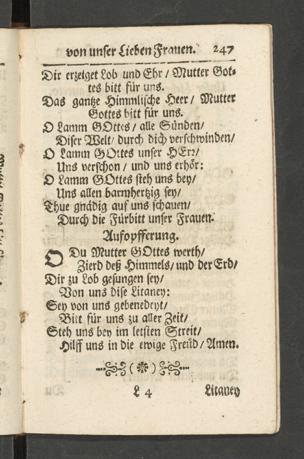 von unser Lieben Frauen. 247
Dir erzeiget Lob und Ehr / Mutter Got-
tes bitt für uns.
Das gantze Himmlische Heer / Mutter
Gottes bitt für uns.
O Lamm GOttes / alle Sünden /
Diser Welt / durch dich verschwinden /
O Lamm GOttes unser HErr /
Uns verschon / und uns erhör:
O Lamm GOttes steh uns bey /
Uns allen barmhertzig sey /
Thue gnädig auf uns schauen /
Durch die Fürbitt unser Frauen.
Aufopfferung.
O Du Mutter GOttes werth /
Zierd deß Himmels / und der Erd /
Dir zu Lob gesungen sey /
Von uns dise Litaney:
Sey von uns gebenedeyt /
Bitt für uns zu aller Zeit /
Steh uns bey im letsten Streit /
Hilff uns in die ewige Freüd / Amen.
L 4 Litaney